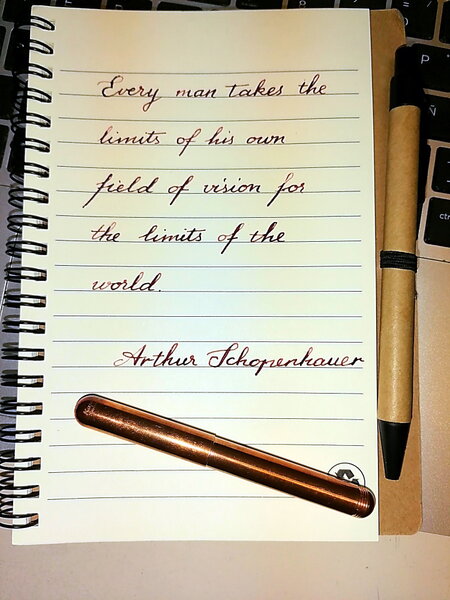 Every man takes the
limits of his own
field of vision for
the limits of the
world.
Arthur Schopenhauer
P
Ñ
ctr